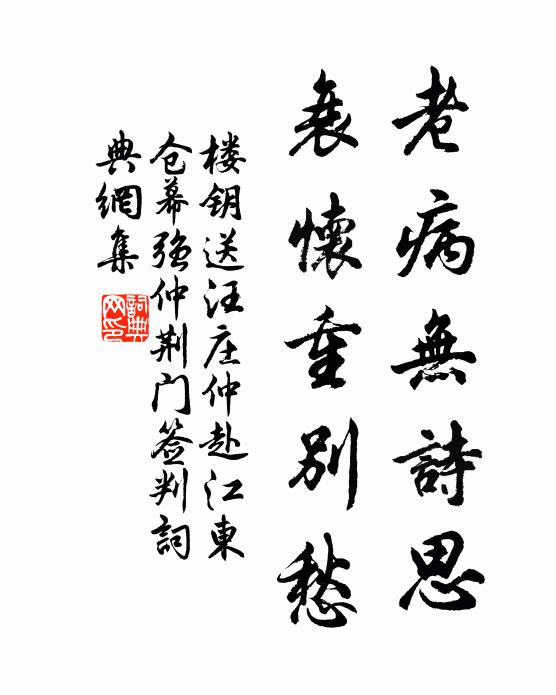 老病無詩思
衰懷重別愁
楼钥送汪庄仲赴江東
仓幕强仲荆门签判詞
典網集
詞典网印